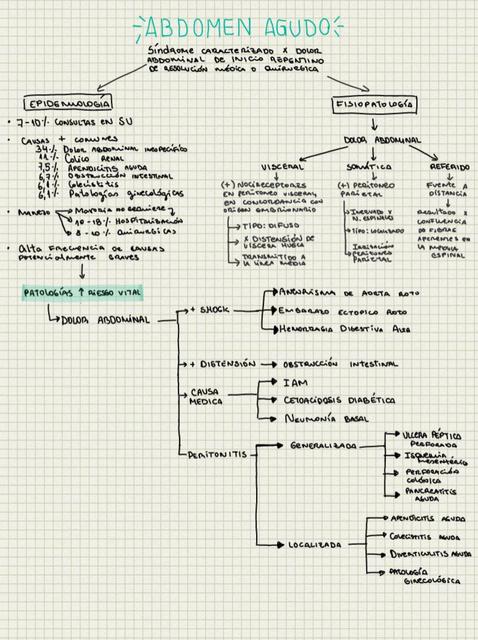 ABDOMEN AGUDO
SÍNDROME CARACTERIZADO X DOLOR
ABDOMINAL DE INICIO REPENTINO
DE RESOLUCIÓN MÉDICA O QUIRURGICA
EPIDEMIOLOGÍA
• 7-10% CONSULTAS EN SU
• CAUSAS + COMUNES
34% DOLOR ABDOMINAL INESPECÍFICO
11% CÓLICO RENAL
7,5% APENDICITIS AGUDA
6,7% OBSTRUCCIÓN INTESTINAL
6,1% COLECISTITIS
6,1% PATOLOGÍAS GINECOLÓGICAS
• MANEJO
MAYORÍA NO REQUIERE
10-18% HOSPITALIZACIÓN
8-10% QUIRURGICAS
• ALTA FRECUENCIA DE CAUSAS
POTENCIALMENTE GRAVES
PATOLOGÍAS ↑ RIESGO VITAL
DOLOR ABDOMINAL
FISIOPATOLOGÍA
DOLOR ABDOMINAL
VISCERAL
(+) NOCICEPTORES
EN PERITONEO VISCERAL,
EN CONCORDANCIA CON
ORIGEN EMBRIONARIO
TIPO: DIFUSO
X DISTENSIÓN DE
VISCERA HUECA
TRANSMITIDO A
LA LINEA MEDIA
SOMÁTICA
(+) PERITONEO
PARIETAL
INERVADO X
N. ESPINALES
TIPO: LOCALIZADO
IRRITACIÓN
PERITONEO
PARIETAL
REFERIDO
FUENTE A
DISTANCIA
RESULTADO X
CONFLUENCIA
DE FIBRAS
AFERENTES EN
LA MEDULA
ESPINAL
+ SHOCK
ANEURISMA DE AORTA ROTO
EMBARAZO ECTOPICO ROTO
HEMORRAGIA DIGESTIVA ALTA
+ DISTENSIÓN
OBSTRUCCIÓN INTESTINAL
CAUSA
MEDICA
IAM
CETOACIDOSIS DIABÉTICA
NEUMONÍA BASAL
PERITONITIS
GENERALIZADA
ULCERA PÉPTICA
PERFORADA
ISQUEMIA
MESENTÉRICA
PERFORACIÓN
COLÓNICA
PANCREATITIS
AGUDA
LOCALIZADA
APENDICITIS AGUDA
COLECISTITIS AGUDA
DIVERTICULITIS AGUDA
PATOLOGÍA
GINECOLÓGICA